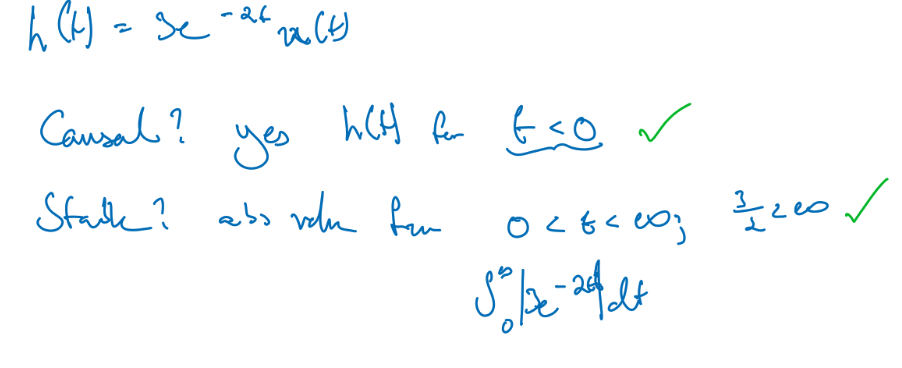 h(t) = 3e^-2t u(t)
Causal? yes h(t) for t < 0 ✓
Stable? abs value from 0 < t < ∞; 3/2 < ∞ ✓
∫_0^∞ |3e^-2t| dt